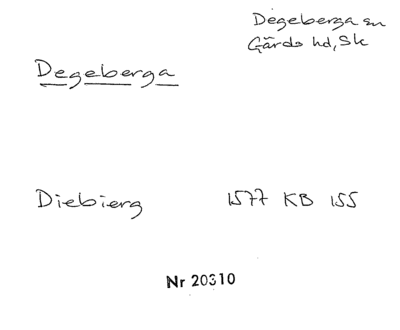 Degeberga sn
Gärds hd, Sk
Degeberga
Diebierg 1577 KB 155
Nr 20310